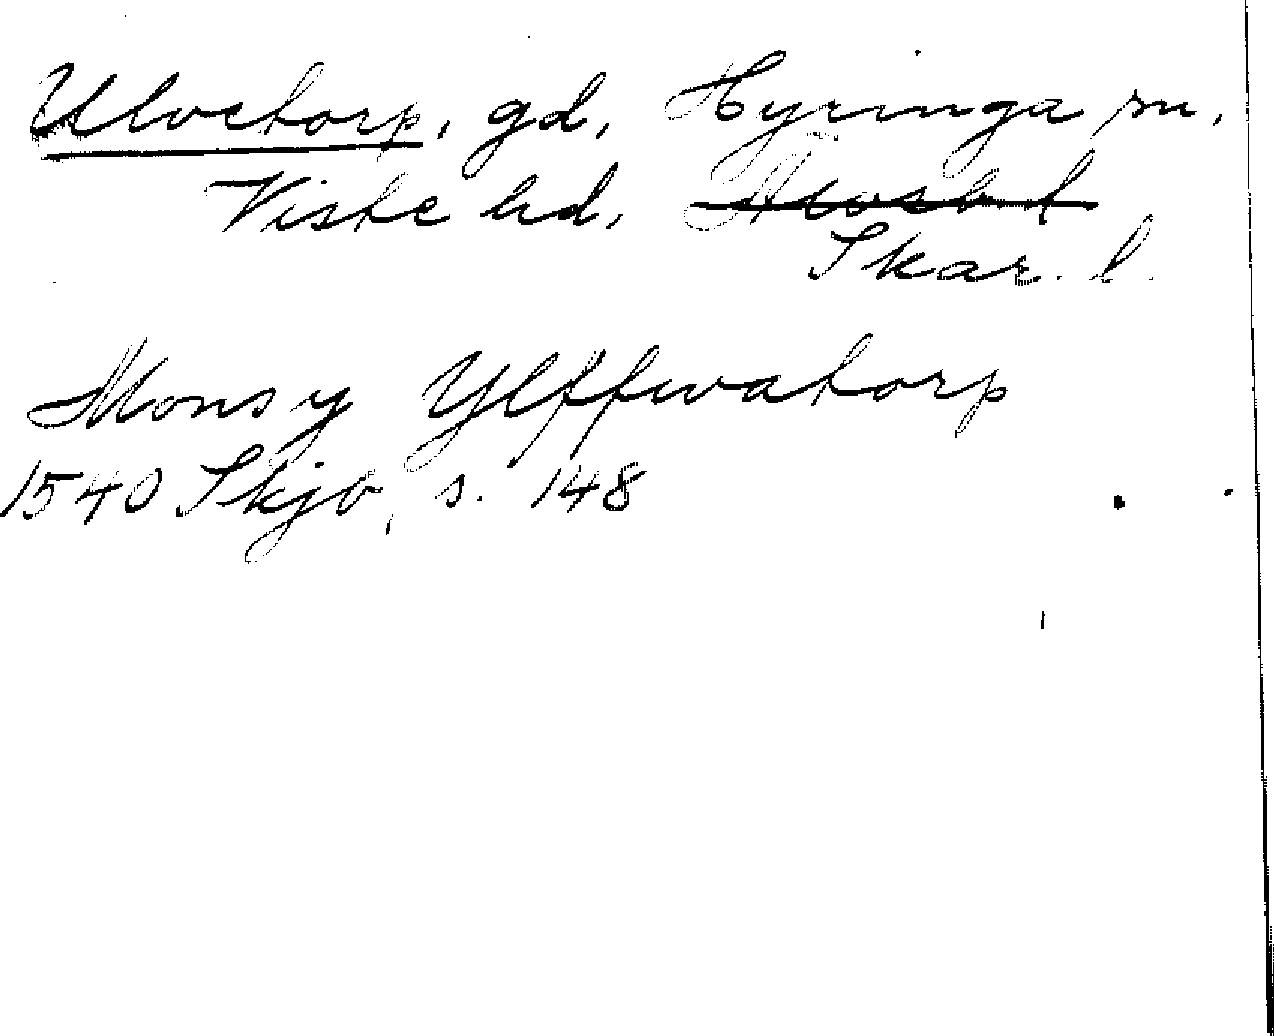 Ulvetorp, gd, Hyringa sn,
Viste hd, Älvsb. l
Skar. l.
Mons y Ylffwatorp
1540 Skjö, s. 148